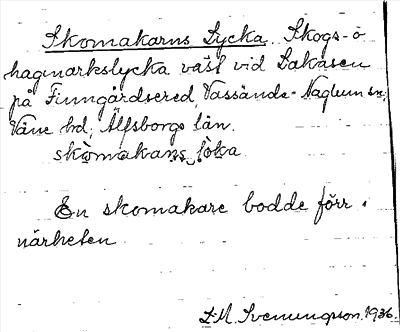 Skomakarns Lycka. Skogs- o
hagmarkslycka väst vid Lakåsen
på Finngårdsered, Vassända-Naglum sn,
Väne hd, Älfsborgs län.
skòmakans löka
En skomakare bodde förr i
närheten
L.M. Svenungsson 1936.